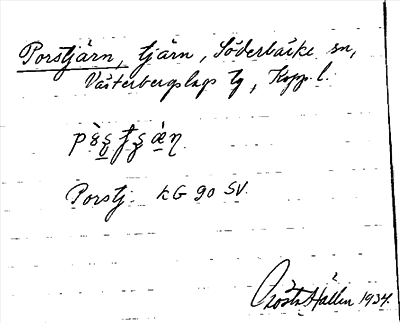 Porstjärn, tjärn, Söderbärke sn,
Västerbergslags tg, Kopp. l.
Porstj. KG 90 SV.
Gösta Hallin 1934.